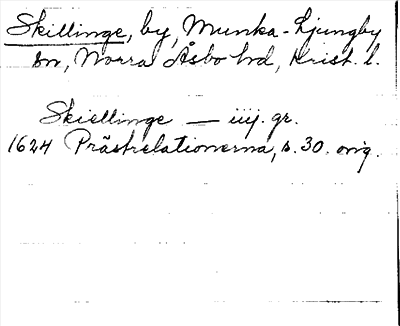 Skillinge, by, Munka-Ljungby
sn, Norra Åsbo hd, Krist. l.
Skiellinge — iiij. gr.
1624 Prästrelationerna, s. 30. orig.